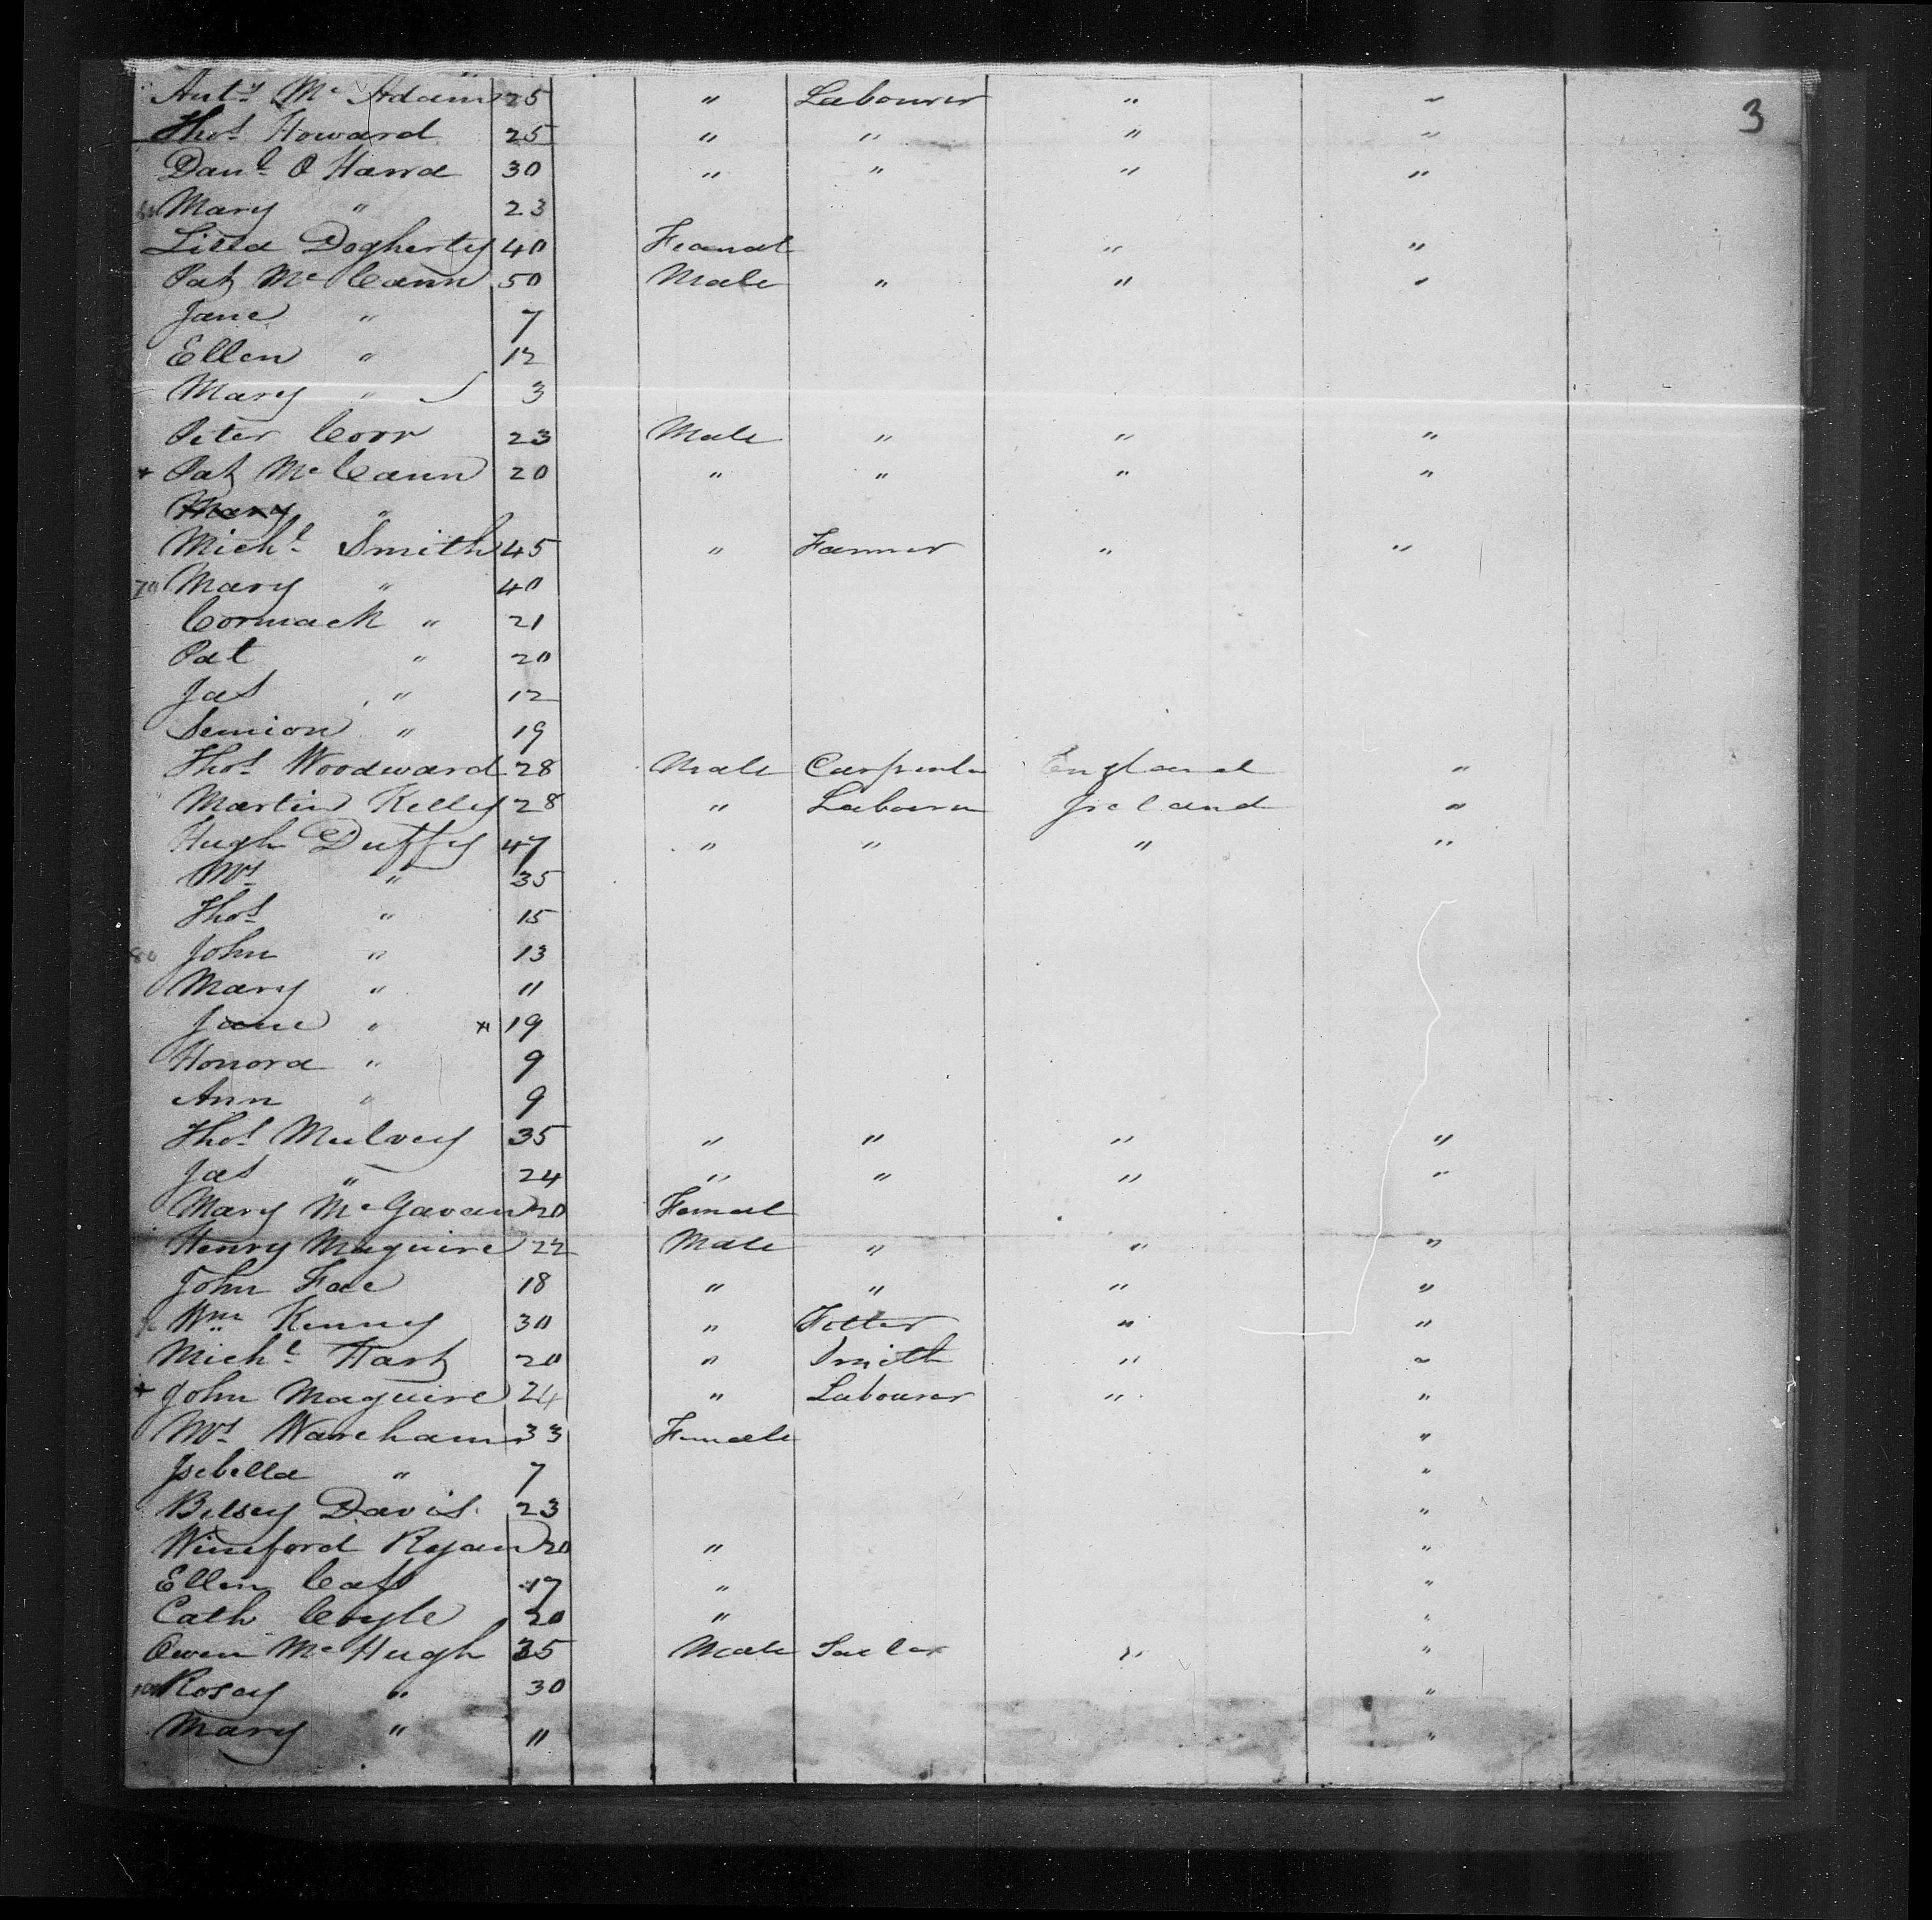 3
Anty Mc Adam 25 " Labourer " "
Thos Howard 25 " " " "
Danl O Harra 30 " " " "
Mary " 23
Dogherty 40 Feamal " "
Pat Mc Cann 50 Male " " "
Jane " 7
Ellen " 12
Mary " 3
Peter Corr 23 Male " " "
+ Pat Mc Cann 20 " " " "
Mary "
Michl Smith 45 " Farmer " "
70 Mary " 40
Cormack " 21
Pat " 20
Jas " 12
Semion " 19
Thos Woodward 28 Male Carpenter England "
Martin Kelly 28 " Labourer Ireland "
Hugh Duffy 47 " " " "
Mrs " 35
Thos " 15
80 John " 13
Mary " 11
Jane " x 19
Honora " 9
Ann " 9
Thos Mulvey 35 " " " "
Jas " 24 " " " "
Mary Mc Gavan 20 Femal
Henry Maguire 22 Male " " "
John Fae 18 " " " "
Wm Kenny 30 " " "
Michl Hart 20 " Smith " "
+ John Maguire 24 " Labourer " "
Mrs Wareham 33 Female "
Isebella " 7 "
Betsey Davis 23 "
Wineford Ryan 20 " "
Ellen 17 " "
Cath Coyle 20 " "
Owen Mc Hugh 35 Male " "
100 Rosey " 30 "
Mary " 11 "